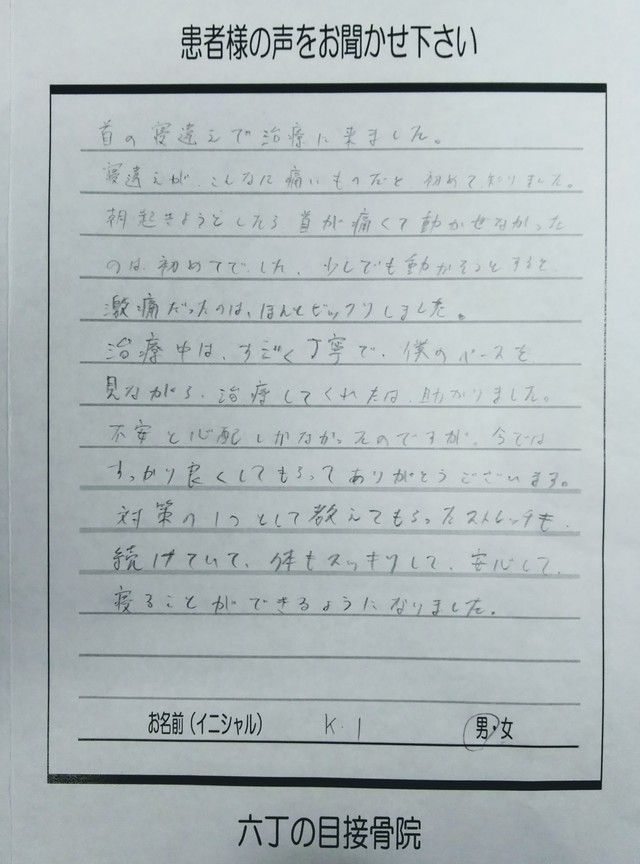 患者様の声をお聞かせ下さい
首の寝違えで治療に来ました。
寝違えが、こんなに痛いものだと初めて知りました。
朝起きようとしたら首が痛くて動かせなかった
のは初めてでした。少しでも動かそうとすると
激痛だったのは、ほんとビックリしました。
治療中は、すごく丁寧で、僕のペースを
見ながら、治療してくれたは、助かりました。
不安と心配しかなかったのですが、今では
すっかり良くしてもらってありがとうございます。
対策の1つとして教えてもらったストレッチも、
続けていて、体もスッキリして、安心して、
寝ることができるようになりました。
お名前（イニシャル） K・I 男・女
六丁の目接骨院